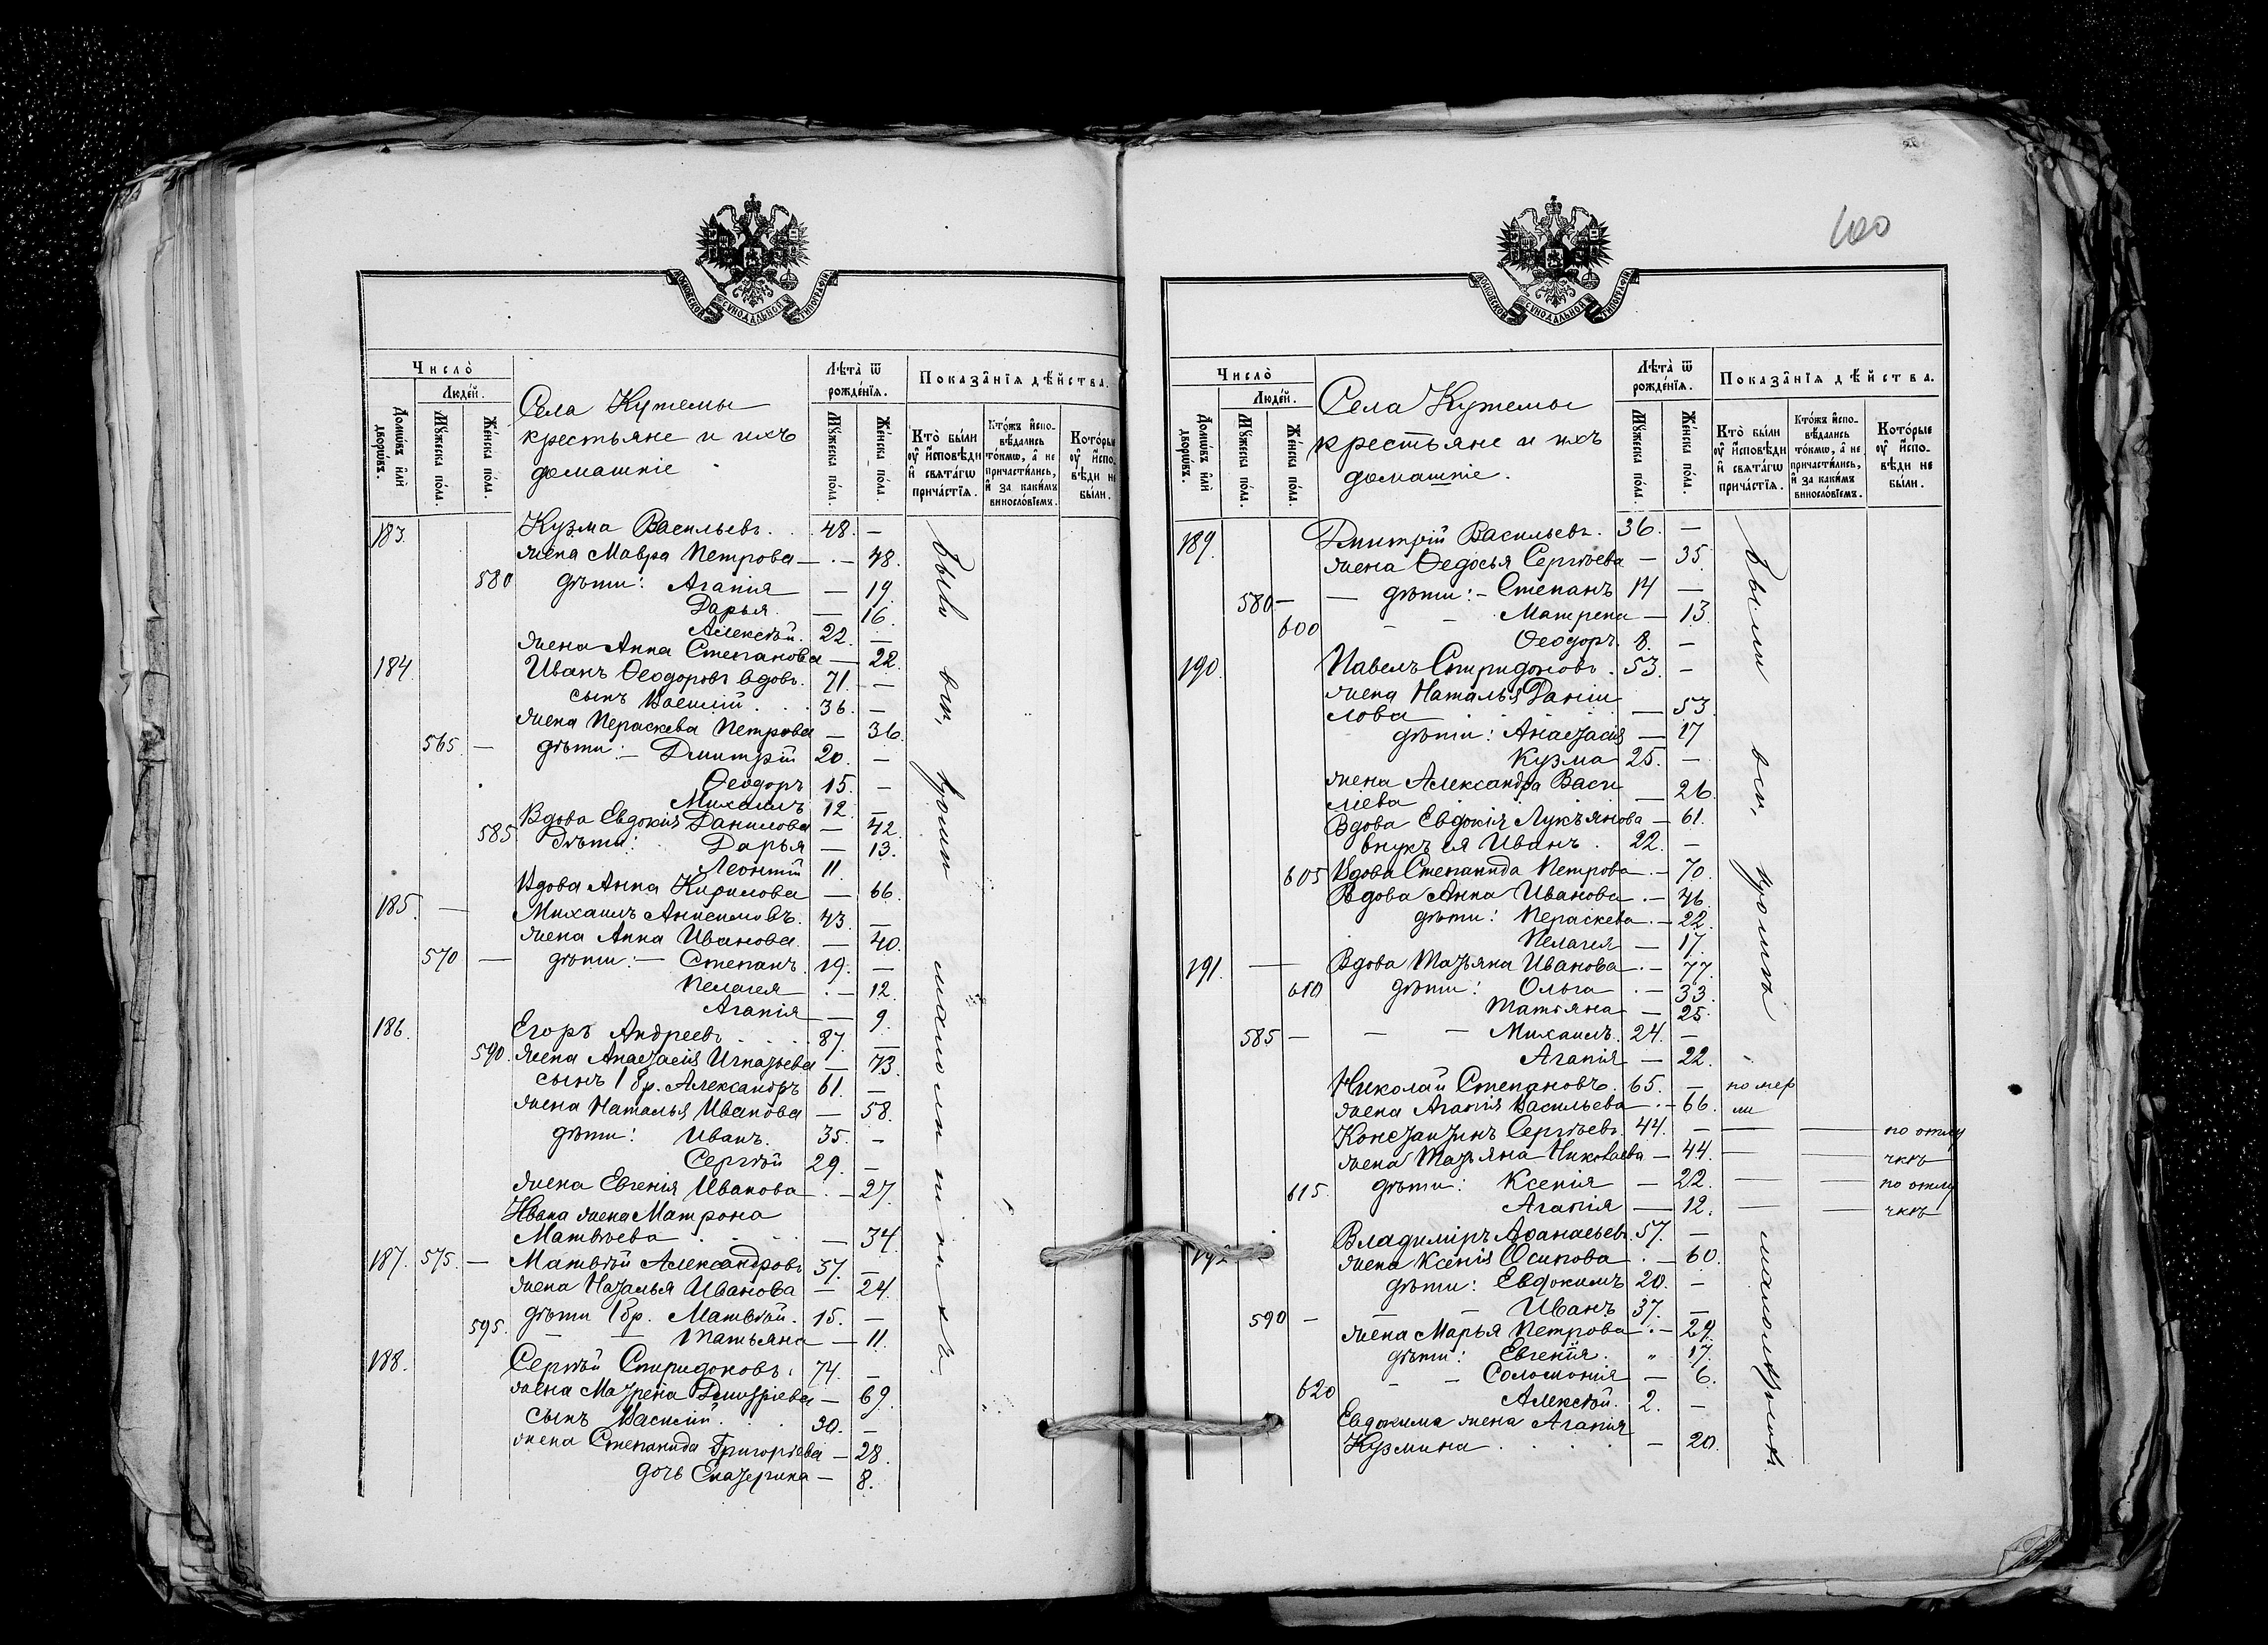 МОСКОВСКОЙ СѴНОДАЛЬНОЙ ТИПОГРАФІИ
Число̀
Людей.
Домѡвъ и҆лѝ дворѡвъ.
Мꙋ́жеска по́ла.
Же́нска по́ла.
Села Кутемы
крестьяне и ихъ
домашніе
Лѣта̀ ѿ рожде́нїѧ.
Мꙋ́жеска по́ла.
Же́нска по́ла.
Показа̑нїѧ дѣ́йства.
Кто̀ бы́ли ᲂу҆ и҆сповѣ́ди и҆ свѧта́гѡ прича́стїѧ.
Кто́жъ и҆сповѣ́дались то́кмѡ, а҆ не причасти́лись, и҆ за каки́мъ винословїемъ.
Кото́рые ᲂу҆ и҆сповѣ́ди не бы́ли.
183. Кузма Васильевъ. 48. —
жена Мавра Петрова — 48.
580 дѣти: Агапія — 19.
Дарья — 16.
Алексѣй. 22. —
жена Анна Степанова — 22.
184. Иванъ Ѳеодоровъ вдовъ. 71. —
сынъ Василій. 36. —
жена Параскева Петрова — 36.
565. — дѣти: — Дмитрій 20. —
Ѳеодоръ 15. —
Михаилъ 12. —
Вдова Евдокія Данилова — 42.
585 Дѣти: Дарья — 13.
Леонтій 11.
Вдова Анна Кирилова — 66.
185. — Михаилъ Анисимовъ. 43. —
жена Анна Иванова. — 40.
570 — дѣти: — Степанъ. 19. —
Пелагея — 12.
Агапія — 9.
186. Егоръ Андреевъ 87. —
590. жена Анастасія Игнатьева — 73.
сынъ 1 бр. Александръ 61. —
жена Наталья Иванова — 58.
дѣти: Иванъ. 35. —
Сергѣй 29. —
жена Евгенія Иванова — 27.
Ивана жена Матрона
Матвѣева — 34.
187. 575. — Матвѣй Александровъ 37. —
жена Наталья Иванова — 24.
дѣти 1 бр. Матвѣй. 15. —
595. — — Татьяна — 11.
188. Сергѣй Спиридоновъ. 74. —
жена Матрена Дмитріева — 69.
сынъ Василій. 30. —
жена Степанида Григорьева — 28.
дочь Екатерина — 8.
Были всѣ, кромѣ малолѣтнихъ.
100
МОСКОВСКОЙ СѴНОДАЛЬНОЙ ТИПОГРАФІИ
Число̀
Людей.
Домѡвъ и҆лѝ дворѡвъ.
Мꙋ́жеска по́ла.
Же́нска по́ла.
Села Кутемы
крестьяне и ихъ
домашніе.
Лѣта̀ ѿ рожде́нїѧ.
Мꙋ́жеска по́ла.
Же́нска по́ла.
Показа̑нїѧ дѣ́йства.
Кто̀ бы́ли ᲂу҆ и҆сповѣ́ди и҆ свѧта́гѡ прича́стїѧ.
Кто́жъ и҆сповѣ́дались то́кмѡ, а҆ не причасти́лись, и҆ за каки́мъ винословїемъ.
Кото́рые ᲂу҆ и҆сповѣ́ди не бы́ли.
189. Дмитрій Васильевъ. 36. —
жена Ѳедосья Сергѣева — 35.
580 — — дѣти: — Степанъ 14 —
600 — — Матрена — 13.
Ѳеодоръ. 8. —
190. Павелъ Спиридоновъ. 53. —
жена Наталья Дани
лова — 53.
дѣти: Анастасія — 17
Кузма 25. —
жена Александра Васи
льева — 26.
Вдова Евдокія Лукъянова — 61.
внукъ ея Иванъ. 22. —
605 Вдова Степанида Петрова — 70.
Вдова Анна Иванова — 46.
дѣти: Параскева — 22.
Пелагея — 17.
191. — Вдова Татьяна Иванова — 77.
610 дѣти: Ольга — 33.
Татьяна — 25.
585 — — — Михаилъ. 24. —
Агапія — 22.
Николай Степановъ. 65. — помер
жена Агапія Васильева — 66. ли
Константинъ Сергѣевъ. 44. — — — по отлу
жена Татьяна Николаева — 44. — — чкѣ
615. дѣти: Ксенія — 22. — — по отлу
Агапія — 12. — — чкѣ
192 Владиміръ Аѳанасьевъ. 57. —
жена Ксенія Осипова — 60.
дѣти: Евдокимъ 20. —
590 — — — Иванъ 37. —
жена Марья Петрова — 29.
дѣти: Евгенія. „ 17.
— — Соломонія — 6.
620 Алексѣй. 2. —
Евдокима жена Агапія
Кузмина — 20.
Были всѣ, кромѣ малолѣтнихъ.